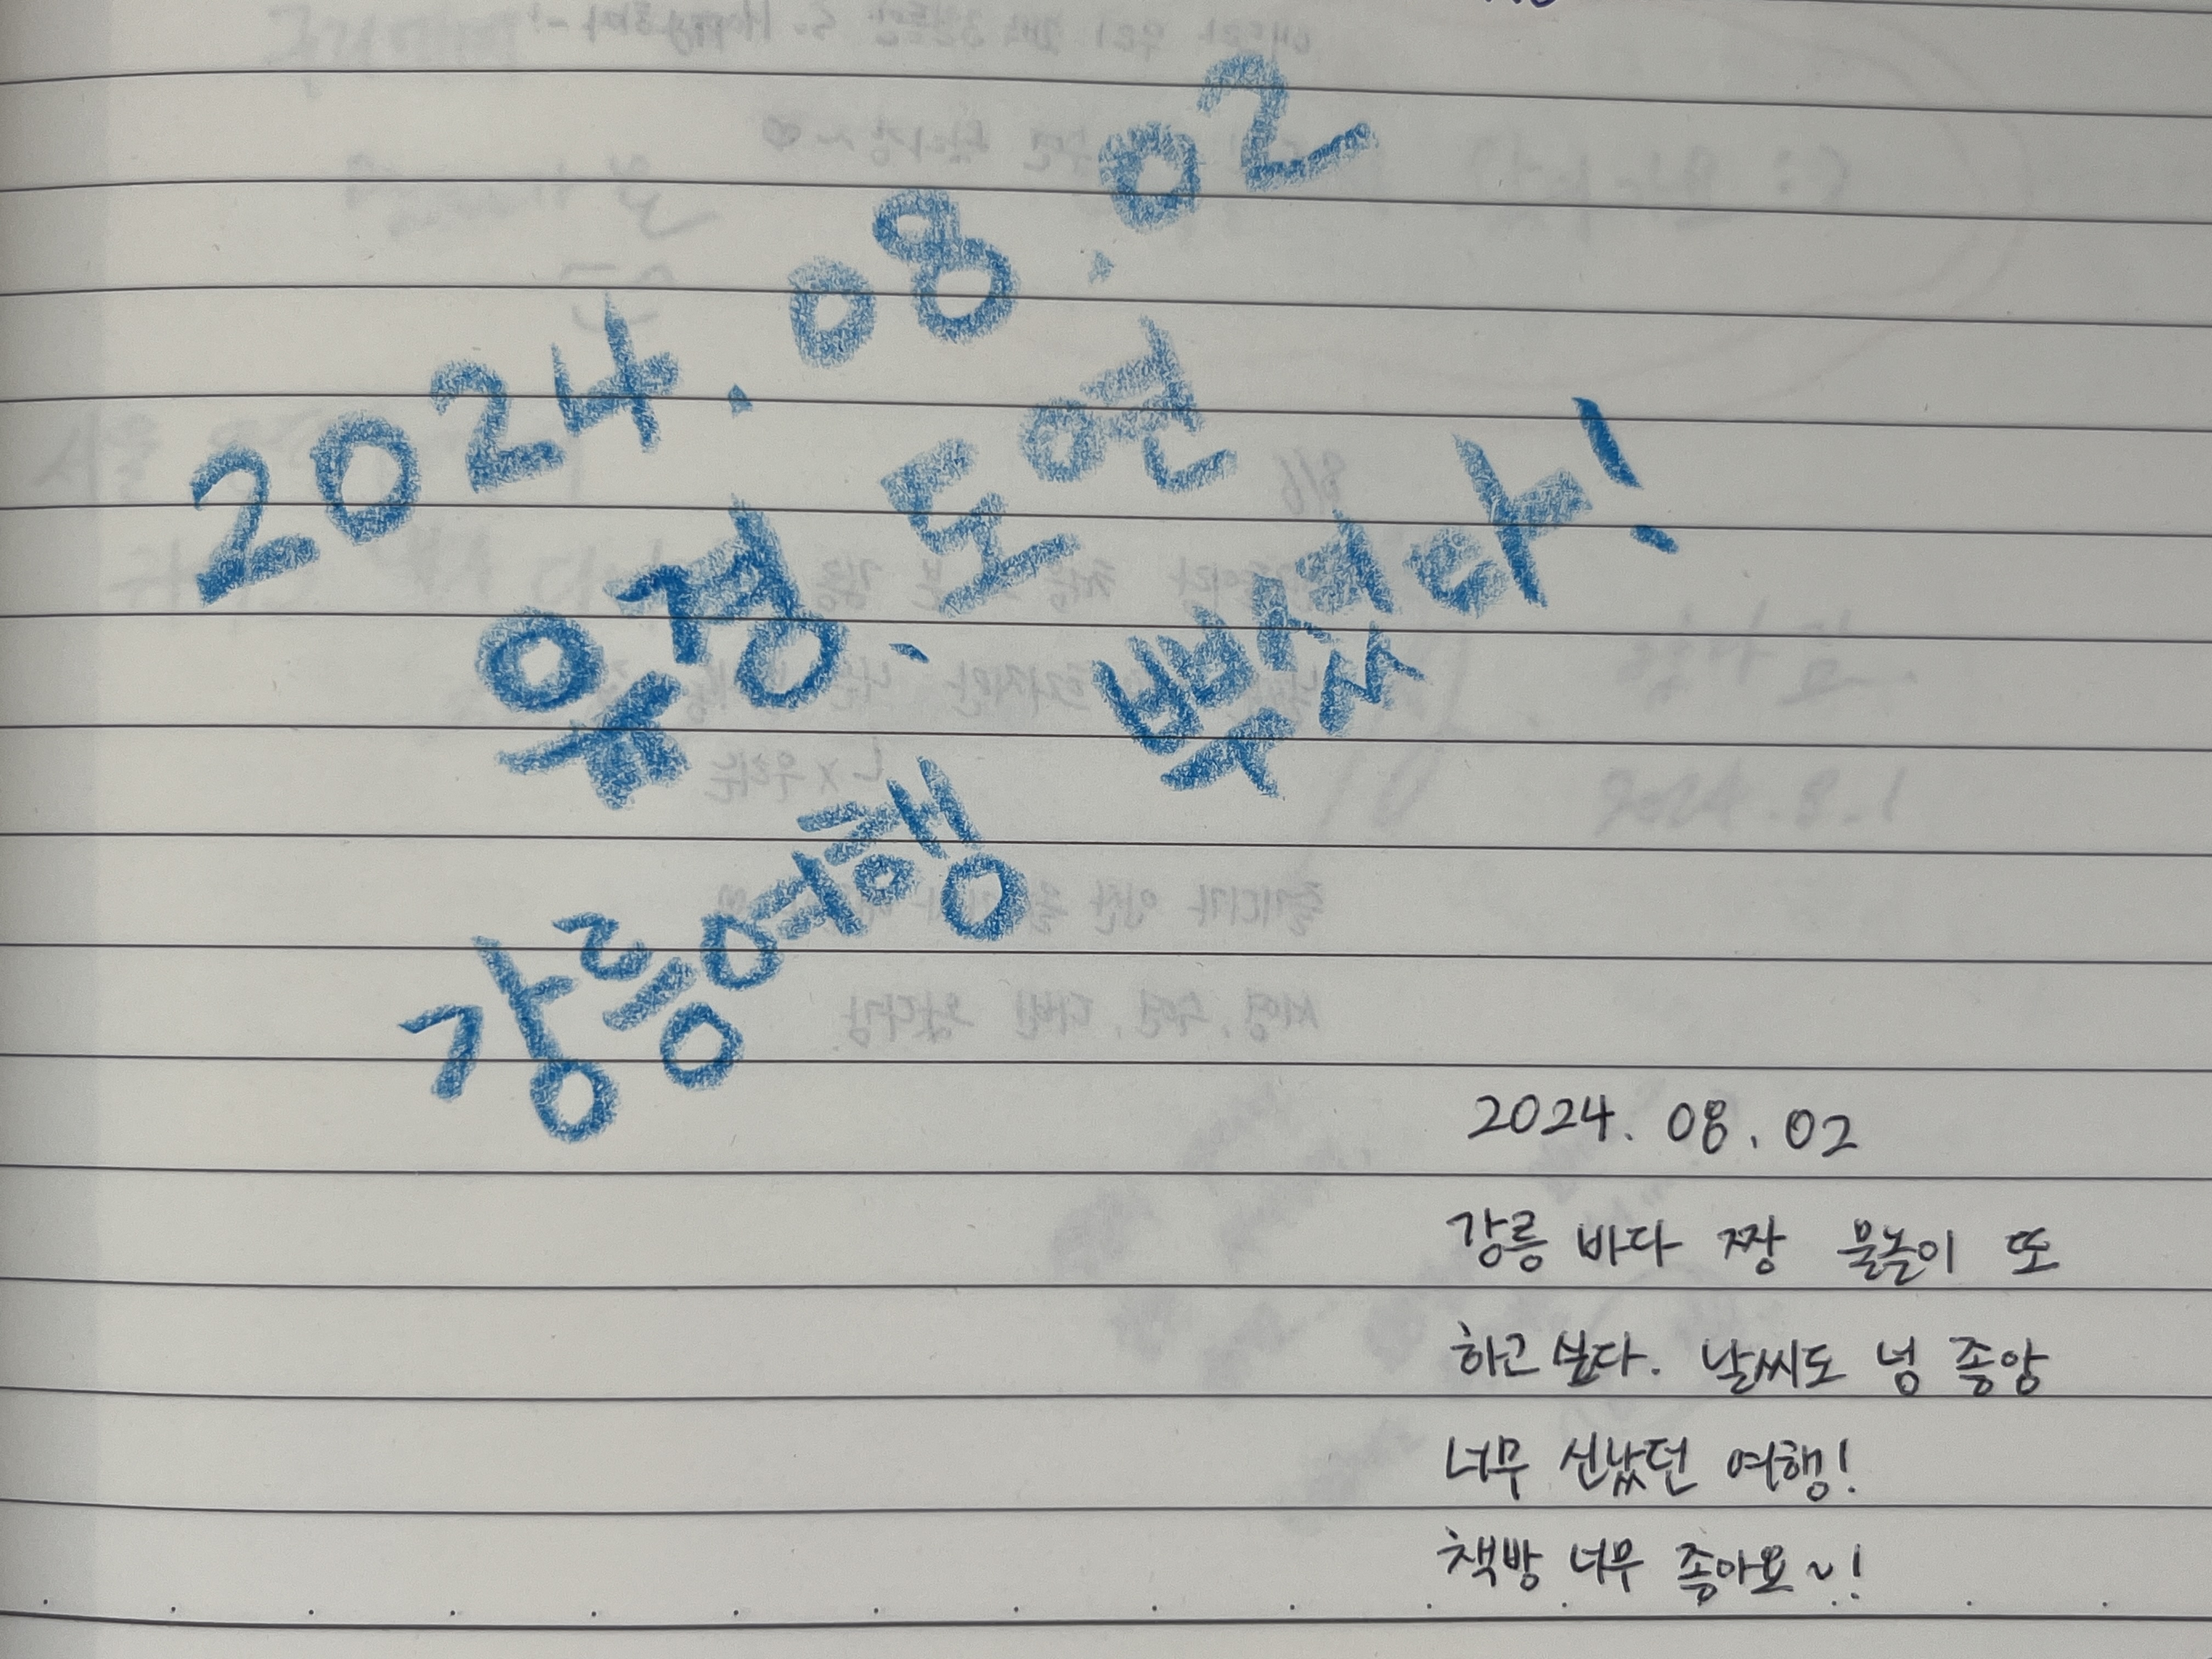 2024.08.02
유정.도연
뿌시다!
강릉여행
2024. 08. 02
강릉 바다 짱 물놀이 또
하고 싶다. 날씨도 넝 좋앙
너무 신났던 여행!
책방 너무 좋아요~!